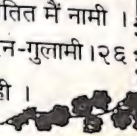 तित मैं नामी ।
न-गुलामी ।२६
ही ।